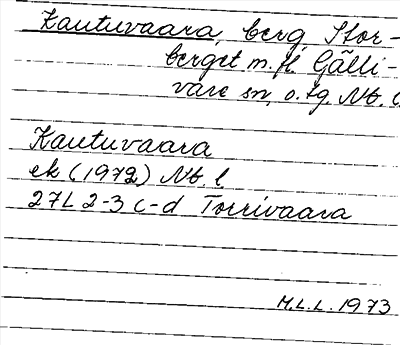 Kautuvaara, berg, Stor-
berget m. fl. Gälli-
vare sn, o. tg. Nb. l
Kautuvaara
ek (1972) Nb. l
27L 2-3 c-d Torrivaara
M.L.L. 1973